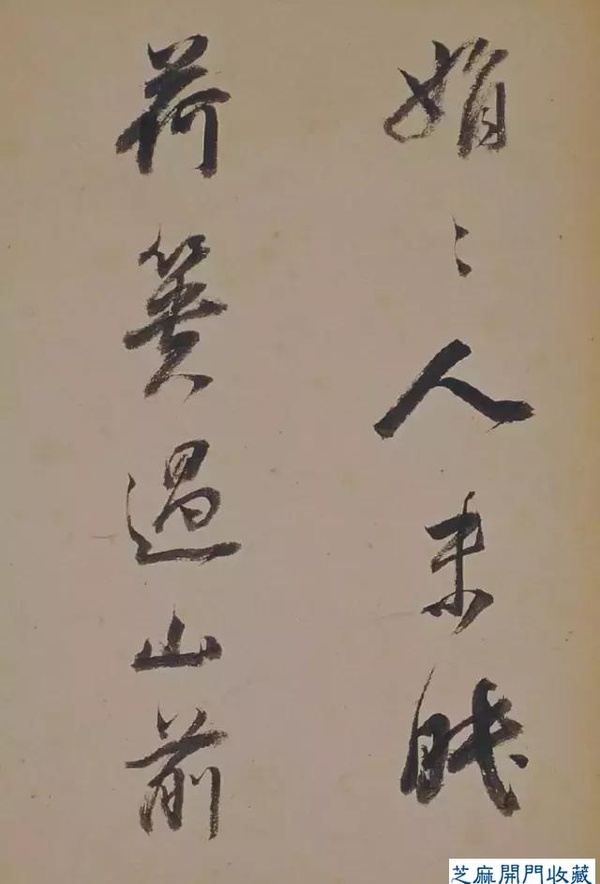 娟〻人未眠
荷簣過山前
芝麻開門收藏